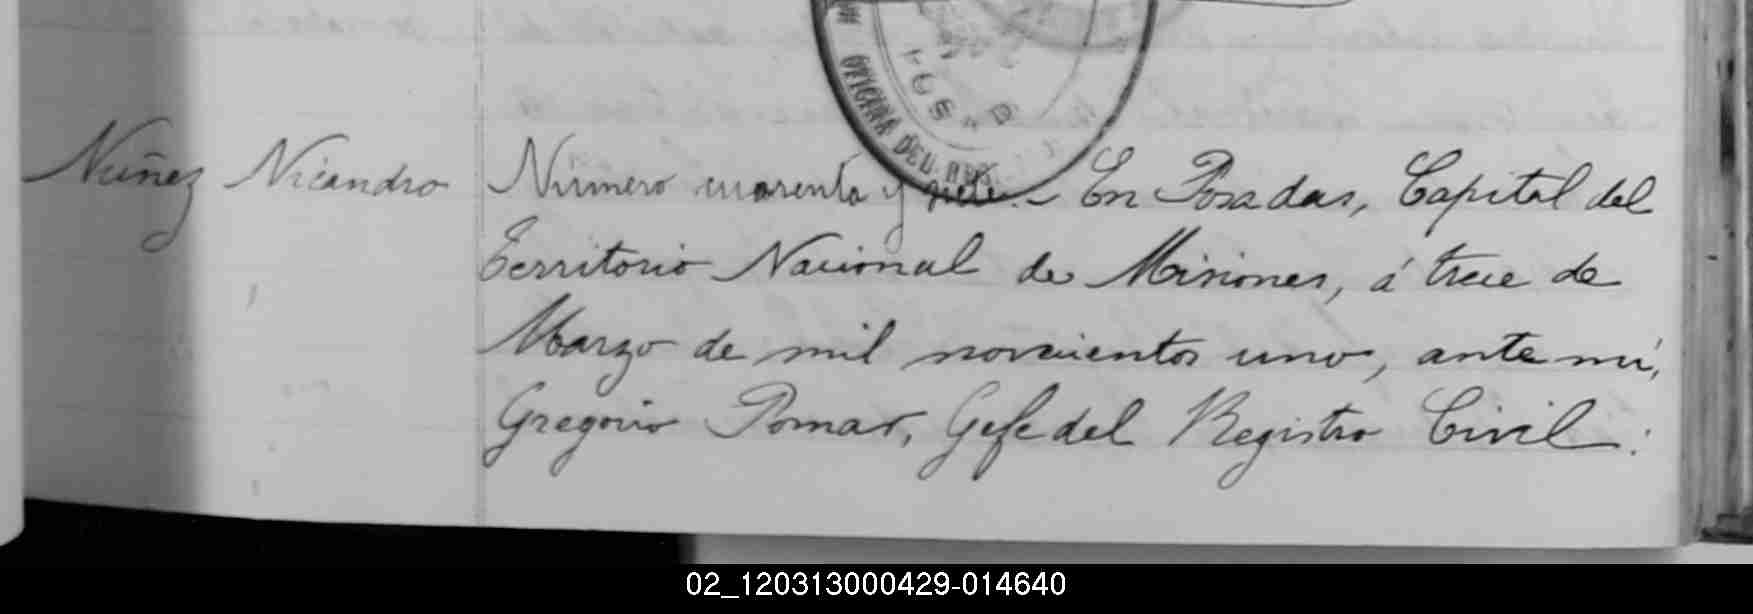 OFICINA DEL
Nuñez Nicandro
Número cuarenta y siete.- En Posadas, Capital del
Territorio Nacional de Misiones, á trece de
Marzo de mil novecientos uno, ante mi,
Gregorio Pomar, Gefe del Registro Civil:
02_120313000429-014640